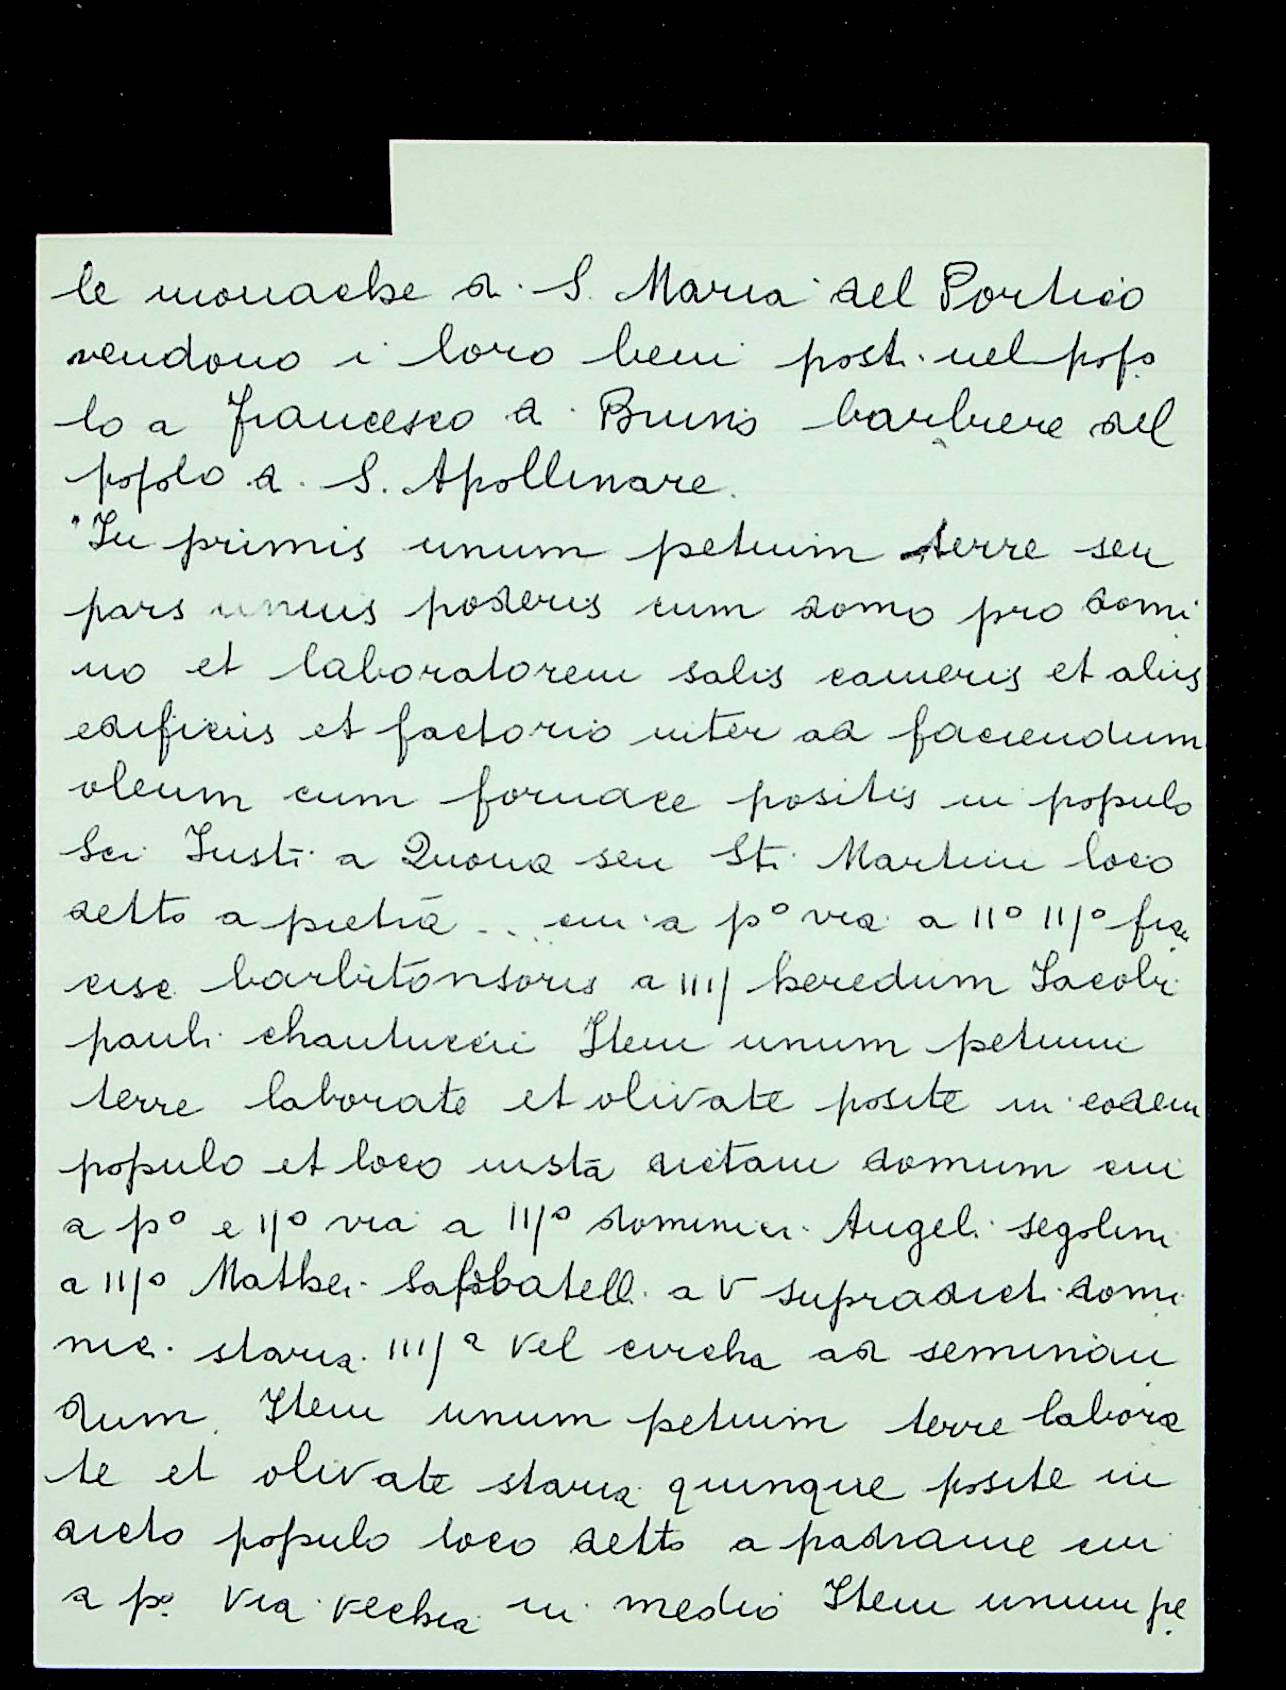 le monache di S. Maria del Portico
vendono i loro beni posti nel popo
lo a Francesco di Bruno barbiere del
popolo di S. Apollinare.
"In primis unum petium terre seu
pars unius poderis cum domo pro domi
no et laboratorem salis cameris et aliis
edificiis et factorio inter ad faciendum
oleum cum fornace positis in populo
Sci Iusti a Quona seu Sti Martini loco
detto a pietra ... cui a p° via a II° III° fra
cisc barbitonsoris a IIII heredum Iacobi
pauli chantuccii Item unum petium
terre laborate et olivate posite in eodem
populo et loco iusta dictam domum cui
a p° e II° via a III° dominici Angeli segolini
a III° Mathei Sabbatelli a V supradicti domi
nici staria IIII a vel circha ad seminan
dum. Item unum petium terre labora
te et olivate staria quinque posite in
dicto populo loco detto a padrame cui
a p° via vechia in medio Item unum pe